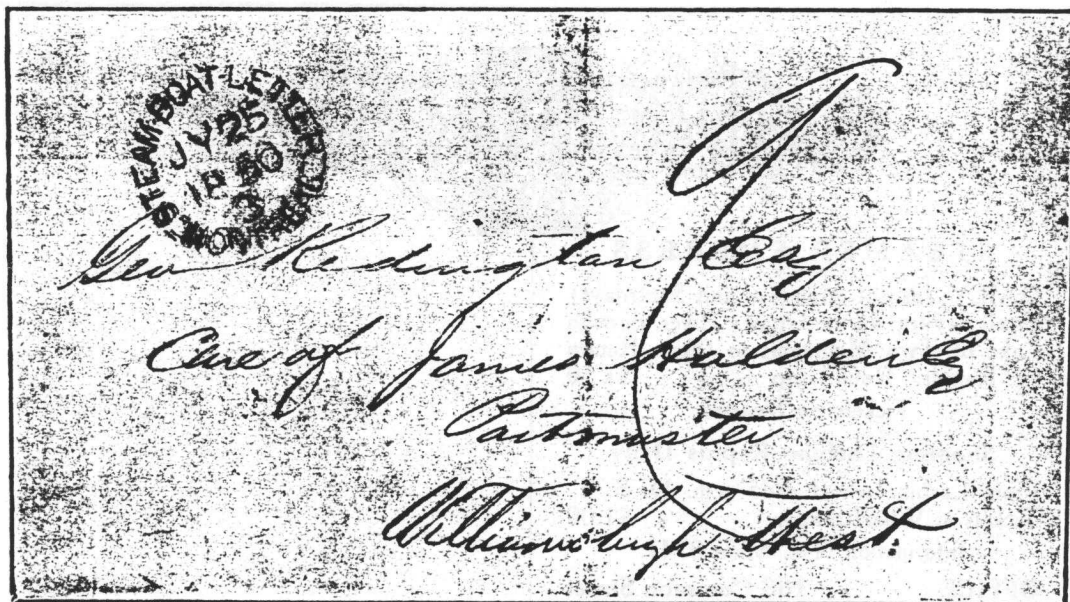 STEAM-BOAT-LETTER
JY 25
1850
Geo Redington Esq
Care of James Holden Esq
Postmaster
Williamsburgh West